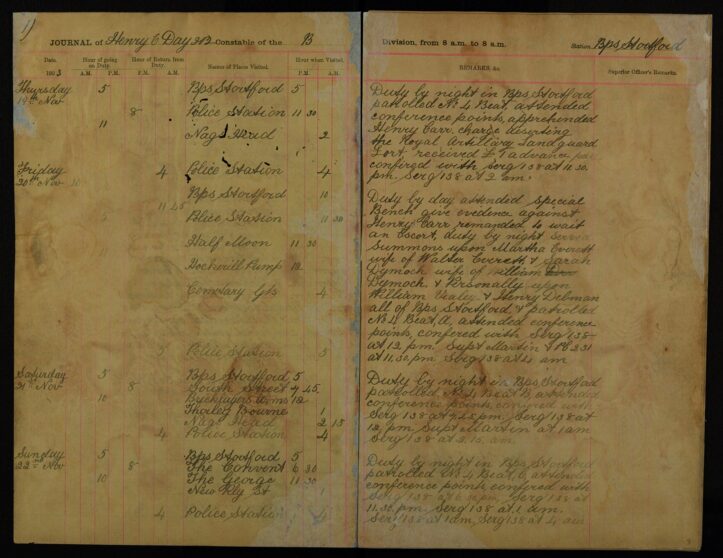 1)
JOURNAL of Henry C Day 212 Constable of the B
Date. Hour of going on Duty. Hour of Return from Duty. Names of Places Visited. Hour when Visited.
1903 A.M. P.M. A.M. P.M. A.M. P.M.
Thursday 5 Bps Stortford 5
19th Nov 8 Police Station 11 30
11 Nags Head 2
Friday 4 Police Station 4
20th Nov 10 Bps Stortford 10
11 45
Police Station 11 30
Half Moon 11 30
Hockerill Pump 12
Cemetary Gts 4
5 Police Station 5
Saturday 5 Bps Stortford 5
21st Nov 8 South Street 7 45
10 12
Thorley Bourne 1
Nags Head 2 15
4 Police Station 4
Sunday 5 Bps Stortford 5
22nd Nov 8 The Convent 6 30
10 The George 11 30
New Rly St 1
4 Police Station 4
Division, from 8 a.m. to 8 a.m. Station, Bps Stortford
REMARKS, &c. Superior Officer's Remarks.
Duty by night in Bps Stortford
patrolled No 4 Beat, attended
conference points, apprehended
Henry Carr, charge deserting
the Royal Artillary Landguard
Fort received £1 advance
confired with Serg 138 at 11.30
pm Serg 138 at 2 am.
Duty by day attended Special
Bench give evedence against
Henry Carr remanded to wait
an Escort, duty by night
Summons upon Martha Everett
wife of Walter Everett & Sarah
Dymoch wife of William
Dymoch & Personally upon
William Vealey & Henry Delman
all of Bps Stortford & patrolled
No 4 Beat, attended conference
points, confered with Serg 138
at 12 pm Supt Martin & 231
at 11.30 pm Serg 138 at 4 am
Duty by night in Bps Stortford
patrolled No 4 Beat B, attended
conference points confered with
Serg 138 at 7.45 pm, Serg 138 at
12, pm Supt Martin at 1 am
Serg 138 at 2.15 am
Duty by night in Bps Stortford
patrolled No 4 Beat, attended
conference points confered with
Serg 138 at 6.30 pm, Serg 138 at
11.30 pm, Serg 138 at 1 am.
Serg 138 at 1 am, Serg 138 at 4 am